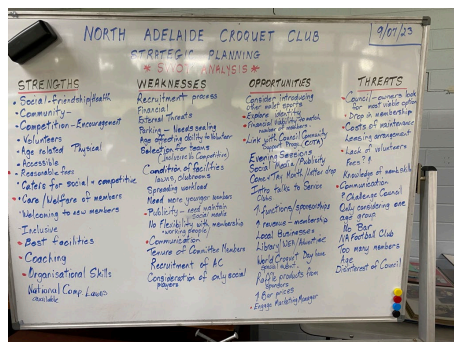 NORTH ADELAIDE CROQUET CLUB
9/07/23
STRATEGIC PLANNING
* SWOT ANALYSIS *
STRENGTHS
• Social-friendship/Health
• Community-
• Competition-Encouragement
• Volunteers
Age related Physical
• Accessible
• Reasonable fees
• Caters for social & competitive
• Care/Welfare of members
Welcoming to new members
Inclusive
• Best facilities
• Coaching
• Organisational Skills
National Comp. Lawns
available
WEAKNESSES
Recruitment process
Financial
External Threats
Parking - Needs sealing
Age affecting ability to Volunteer
Selection for teams
(Inclusive vs Competitive)
Condition of facilities
lawns, clubrooms
Spreading workload
Need more younger members
• Publicity - need maintain
social media
No Flexibility with membership
working people
• Communication
Tenure of Committee Members
Recruitment of AC
Consideration of only social
players
OPPORTUNITIES
Consider introducing
other mallet sports
• Explore identity
• Financial viability to match
number of members
• Link with Council Community
Support Progs (COTA)
Evening Sessions
Social Media/Publicity
Come & Try Month/letter drop
Intro talks to Service
Clubs
↑ functions/sponsorships
↑ revenue - membership
Local Businesses
Library/Web/Advertise
World Croquet Day have
special event
Raffle products from
sponsors
↑ Bar prices
• Engage Marketing Manager
THREATS
• Council-owners look
for most viable option
• Drop in membership
• Costs of maintenance
Leasing arrangement
• Lack of volunteers
Fees? ↑
Knowledge of
• Communication
? Challenge Council
Only considering one
age group
No Bar
NA Football Club
Too many members
Age
Disinterest of Council